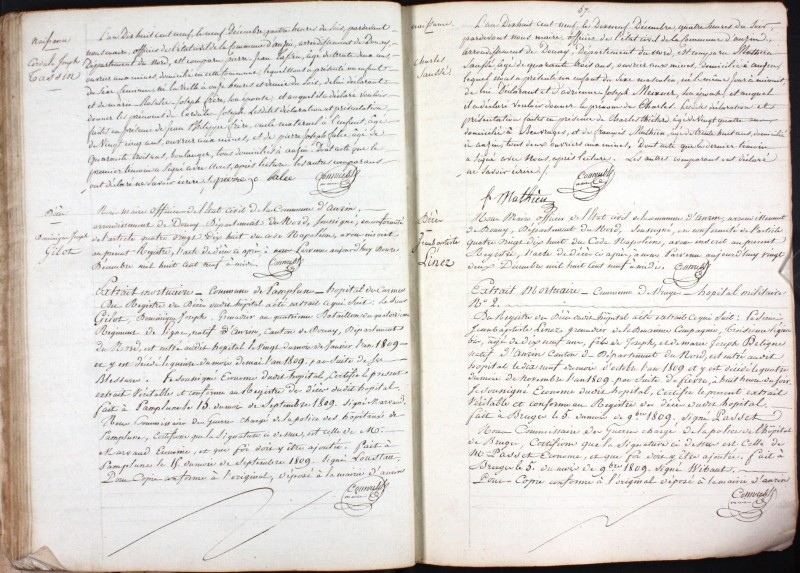 Naissance
Cordule Joseph
Cassin
L'an Dix huit cent neuf, le neuf Décembre, quatre heures du soir, pardevant
nous maire, officier de l'état civil de la Commune d'anzin, arrondissement de Douay,
Département du Nord, est comparu pierre Jean
ouvrier aux mines, domicilié en cette commune, lequel nous a présenté un enfant
du sexe féminin, né la veille à onze heures et demie du soir, de lui déclarant
et de marie Joseph son épouse, et auquel il a déclaré vouloir
donner les prénoms de Cordule Joseph. Lesdites déclaration et présentation
faites en présence de Jean Philippe oncle maternel à l'enfant, âgé
de Vingt cinq ans, ouvrier aux mines, et de pierre Joseph Calié, âgé de
quarante trois ans, boulanger, tous domiciliés à anzin. Dont acte que le
premier témoin a signé avec Nous, après lecture, les autres comparans
ont déclaré ne savoir écrire
Décès
Dominique Joseph
Gilot
Nous Maire officier de l'état civil de la Commune d'anzin,
arrondissement de Douay, Département du Nord, soussigné, en conformité
de l'article quatre vingt dix huit du code Napoléon, avons inscrit
au présent Registre, l'acte de décès ci après ; à anzin Le aujourd'huy Onze
Décembre mil huit cent neuf à midi.
Extrait mortuaire - Commune de Pamplune - hopital de Carmes
Du Registre de Décès dudit hôpital a été extrait ce qui suit : Le sieur
Gilot, Dominique Joseph, Grenadier au quatrième Bataillon du quatorzième
Régiment de ligne, natif d'Anzin, Canton de Douay, Département
du Nord, est entré audit hopital le vingt du mois de Janvier l'an 1809
et y est décédé le quinze du mois de mai l'an 1809, par suite de ses
Blessures. Je soussigné Econome dudit hôpital, Certifie le présent
extrait Véritable et conforme au Registre de décès dudit hopital.
fait à Pamplune le 15 du mois de Septembre 1809. signé Marraud.
Nous Commissaire des Guerres chargé de la police des hopitaux de
Pamplune, Certifions que la signature ci dessus, est celle de Mr.
Marraud Econome, et que foi doit y être ajoutée. Fait à
Pamplune le 15 du mois de Septembre 1809. signé
Pour Copie conforme à l'original, déposé à la mairie d'anzin
47.
naissance
Charles
Saussé
L'an Dix huit cent neuf, le Dix neuf Décembre, quatre heures du soir,
pardevant nous maire, officier de l'état civil de la Commune d'anzin,
arrondissement de Douay, Département du Nord, est comparu Mathieu
Saussé, âgé de quarante trois ans, ouvrier aux mines, Domicilié à anzin
lequel nous a présenté un enfant du sexe masculin, né à minuit
de lui Déclarant et d'adrienne Joseph Meunier, son épouse, et auquel
il a déclaré vouloir donner le prénom de Charles. Lesdites déclaration et
présentation faites en présence de Charles âgé de Vingt quatre
domicilié à Beuvrages, et de françois Mathieu, âgé de trente huit ans, domicilié
à anzin, tous deux ouvriers aux mines, dont acte que le dernier témoin
a signé avec Nous, après lecture. Les autres comparans ont déclaré
ne savoir écrire
f. Mathieu
Décès
Jean baptiste
Linez
Nous Maire officier de l'état civil de la commune d'anzin, arrondissement
de Douay, Département du Nord, soussigné, en conformité de l'article
quatre Vingt dix huit du Code Napoléon, avons inscrit au présent
Registre, l'acte de décès ci après, à anzin aujourd'huy vingt
deux Décembre mil huit cent neuf à midi.
Extrait Mortuaire - Commune de Bruges - hopital militaire
No. 2.
Du Registre de Décès dudit hôpital a été extrait ce qui suit : Le sieur
Jean baptiste Linez grenadier de la Deuxième Compagnie,
âgé de dix neuf ans, fils de Joseph, et de marie Joseph
natif d'Anzin Canton Département du Nord, est entré audit
hopital le dix neuf du mois d'octobre l'an 1809 et y est décédé le quatre
du mois de novembre l'an 1809 par suite de fièvre, à huit heures du soir.
Je soussigné Econome dudit hopital, Certifie le présent extrait
Véritable et conforme au Registre de décès dudit hopital.
fait à Bruges le 5 du mois de 9bre 1809. signé Passet
Nous Commissaire des Guerres chargé de la police de l'hopital
de Bruges, Certifions que la signature ci dessus est Celle de
Mr Passet Econome, et que foi doit y être ajoutée. fait à
Bruges le 5 du mois de 9bre 1809. signé Wibaut.
Pour Copie conforme à l'original déposé à la mairie d'anzin